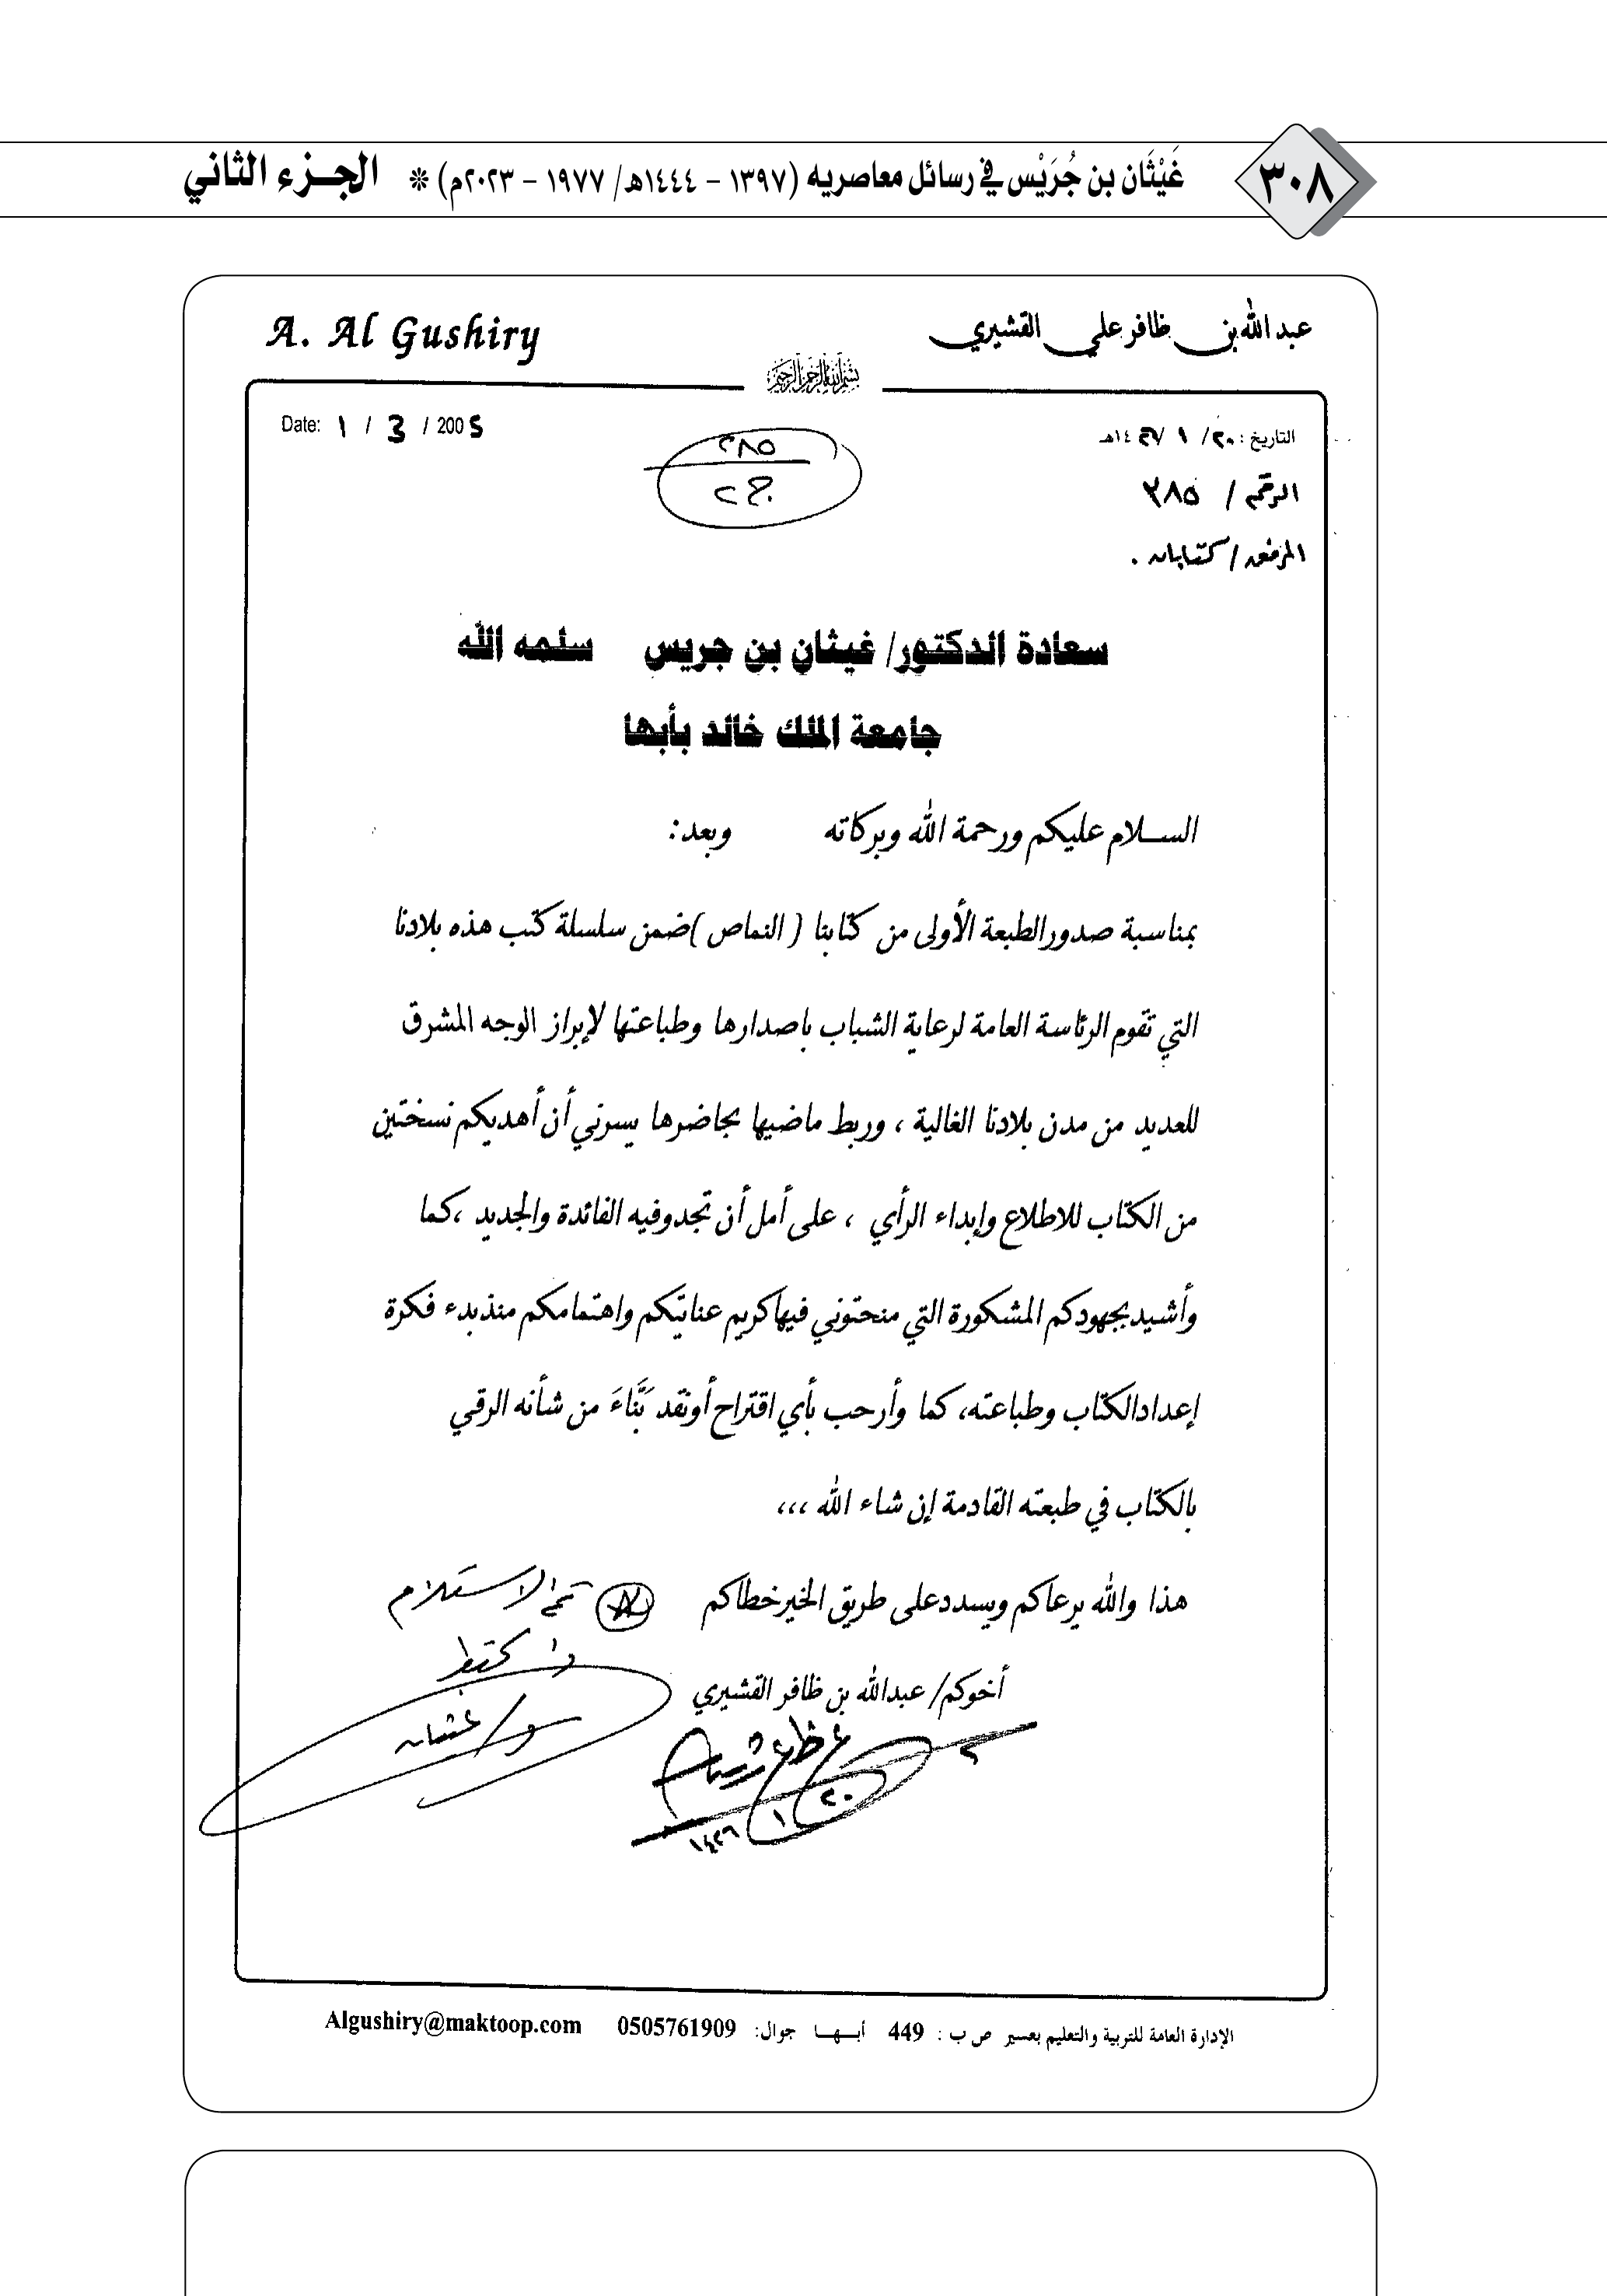 ٣٠٨ غَيْثَان بن جُرَيْس في رسائل معاصريه (١٣٩٧ - ١٤٤٤هـ/ ١٩٧٧ - ٢٠٢٣م) * الجزء الثاني
عبد الله بن ظافر علي القشيري
A. Al Gushiry
بسم الله الرحمن الرحيم
التاريخ : ٢٠/ ١ /١٤٢٦هـ
Date: ١ / 3 / 2005
الرقم / ٣٨٥
٣٨٥
ج٢
المرفق / كتابان .
سعادة الدكتور/ غيثان بن جريس سلمه الله
جامعة الملك خالد بأبها
السلام عليكم ورحمة الله وبركاته وبعد:
بمناسبة صدور الطبعة الأولى من كتابنا ( النماص ) ضمن سلسلة كتب هذه بلادنا
التي تقوم الرئاسة العامة لرعاية الشباب باصدارها وطباعتها لإبراز الوجه المشرق
للعديد من مدن بلادنا الغالية ، وربط ماضيها بحاضرها يسرني أن أهديكم نسختين
من الكتاب للاطلاع وإبداء الرأي ، على أمل أن تجدوفيه الفائدة والجديد ،كما
وأشيد بجهودكم المشكورة التي منحتوني فيها كريم عنايتكم واهتمامكم منذ بدء فكرة
إعداد الكتاب وطباعته، كما وأرحب بأي اقتراح أونقد بَّناءَ من شأنه الرقي
بالكتاب في طبعته القادمة إن شاء الله ،،،
هذا والله يرعاكم ويسدد على طريق الخير خطاكم
تم الاستلام
أخوكم/ عبدالله بن ظافر القشيري
٢٠
١
١٤٢٦
الإدارة العامة للتربية والتعليم بعسير ص ب : 449 أبـهـا جوال: 0505761909 Algushiry@maktoop.com